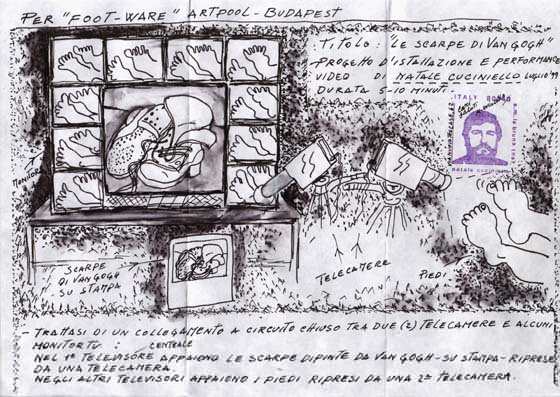 PER "FOOT-WARE" ARTPOOL - BUDAPEST
TITOLO: "LE SCARPE DI VAN GOGH"
PROGETTO D'ISTALLAZIONE E PERFORMANCE
VIDEO DI NATALE CUCINIELLO LUGLIO
DURATA 5-10 MINUTI
ITALY
natale cuciniello
MONITOR
SCARPE
DI VAN GOGH
SU STAMPA
TELECAMERE
PIEDI
TRATTASI DI UN COLLEGAMENTO A CIRCUITO CHIUSO TRA DUE (2) TELECAMERE E ALCUNI
MONITOR TV : CENTRALE
NEL 1° TELEVISORE APPAIONO LE SCARPE DIPINTE DA VAN GOGH - SU STAMPA - RIPRESE
DA UNA TELECAMERA.
NEGLI ALTRI TELEVISORI APPAIONO I PIEDI RIPRESI DA UNA 2a TELECAMERA.